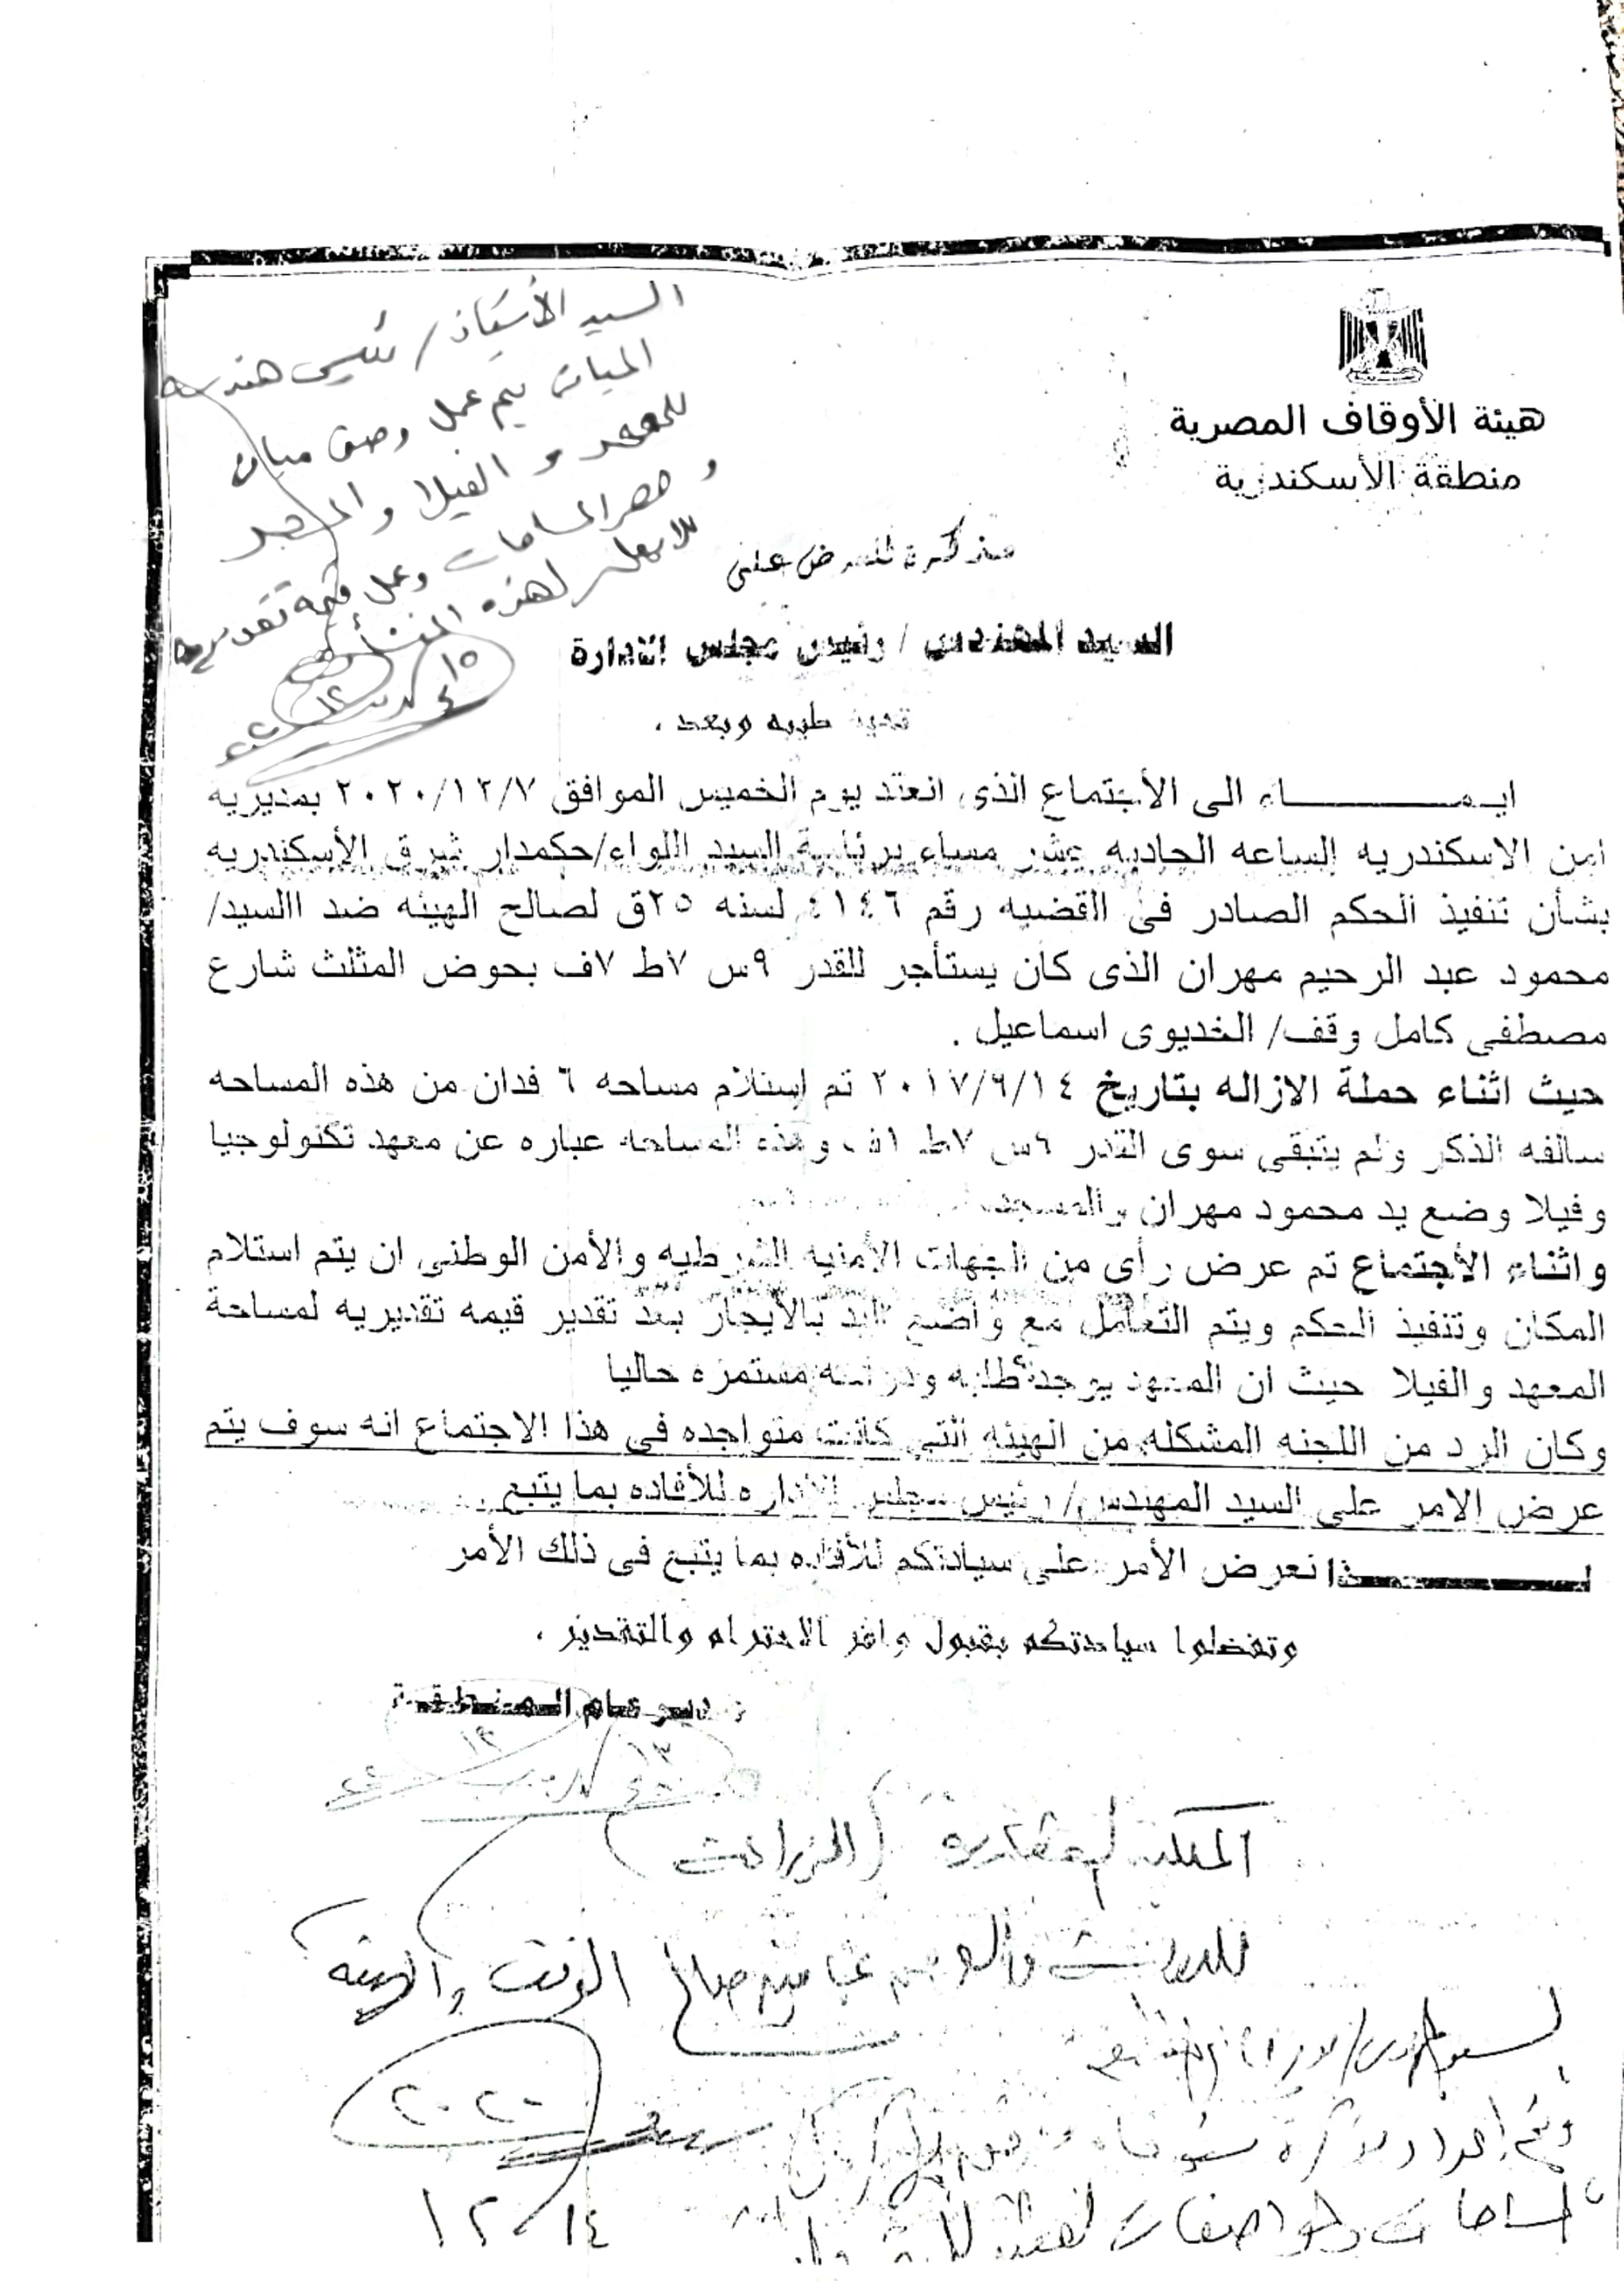 هيئة الأوقاف المصرية
منطقة الأسكندرية
السيد الأستاذ / رئيس هندسة
المبانى يتم عمل وصف مبانى
للمعهد و الفيلا والمسجد
و حصر المساحات وعمل قيمة تقديرية
لهذه
١٥
١٢
مذكرة للعرض على
السيد المهندس / رئيس مجلس الادارة
تحية طيبه وبعد ،
ايمـــــــاء الى الأجتماع الذى انعقد يوم الخميس الموافق ٢٠٢٠/١٢/٧ بمديريه
امن الاسكندريه الساعه الحاديه عشر مساء برئاسة السيد اللواء/حكمدار شرق الأسكندريه
بشأن تنفيذ الحكم الصادر فى القضيه رقم ٤١٤٦ لسنه ٢٥ق لصالح الهيئه ضد االسيد/
محمود عبد الرحيم مهران الذى كان يستأجر للقدر ٩س ٧ط ٧ف بحوض المثلث شارع
مصطفى كامل وقف/ الخديوى اسماعيل .
حيث اثناء حملة الازاله بتاريخ ٢٠١٧/٩/١٤ تم إستلام مساحه ٦ فدان من هذه المساحه
سالفه الذكر ولم يتبقى سوى القدر ٦س ٧ط ١ف وهذه المساحه عباره عن معهد تكنولوجيا
وفيلا وضع يد محمود مهران والمسجد
واثناء الأجتماع تم عرض رأى من الجهات الأمنيه الشرطيه والأمن الوطنى ان يتم استلام
المكان وتنفيذ الحكم ويتم التعامل مع واضع اليد بالأيجار بعد تقدير قيمه تقديريه لمساحة
المعهد والفيلا حيث ان المعهد يوجد طلبه ودراسه مستمره حاليا
وكان الرد من اللجنه المشكله من الهيئه التى كانت متواجده فى هذا الاجتماع انه سوف يتم
عرض الامر على السيد المهندس/ رئيس مجلس الاداره للأفاده بما يتبع
لـــــــذا نعرض الأمر على سيادتكم للأفاده بما يتبع فى ذلك الأمر
وتفضلوا سيادتكم بقبول وافر الاحترام والتقدير ،
مدير عام المنطقة
١٣
١٢
للدراسة والعرض بما فيه صالح الوقف والهيئة
٢٠٢٠
١٢/١٤